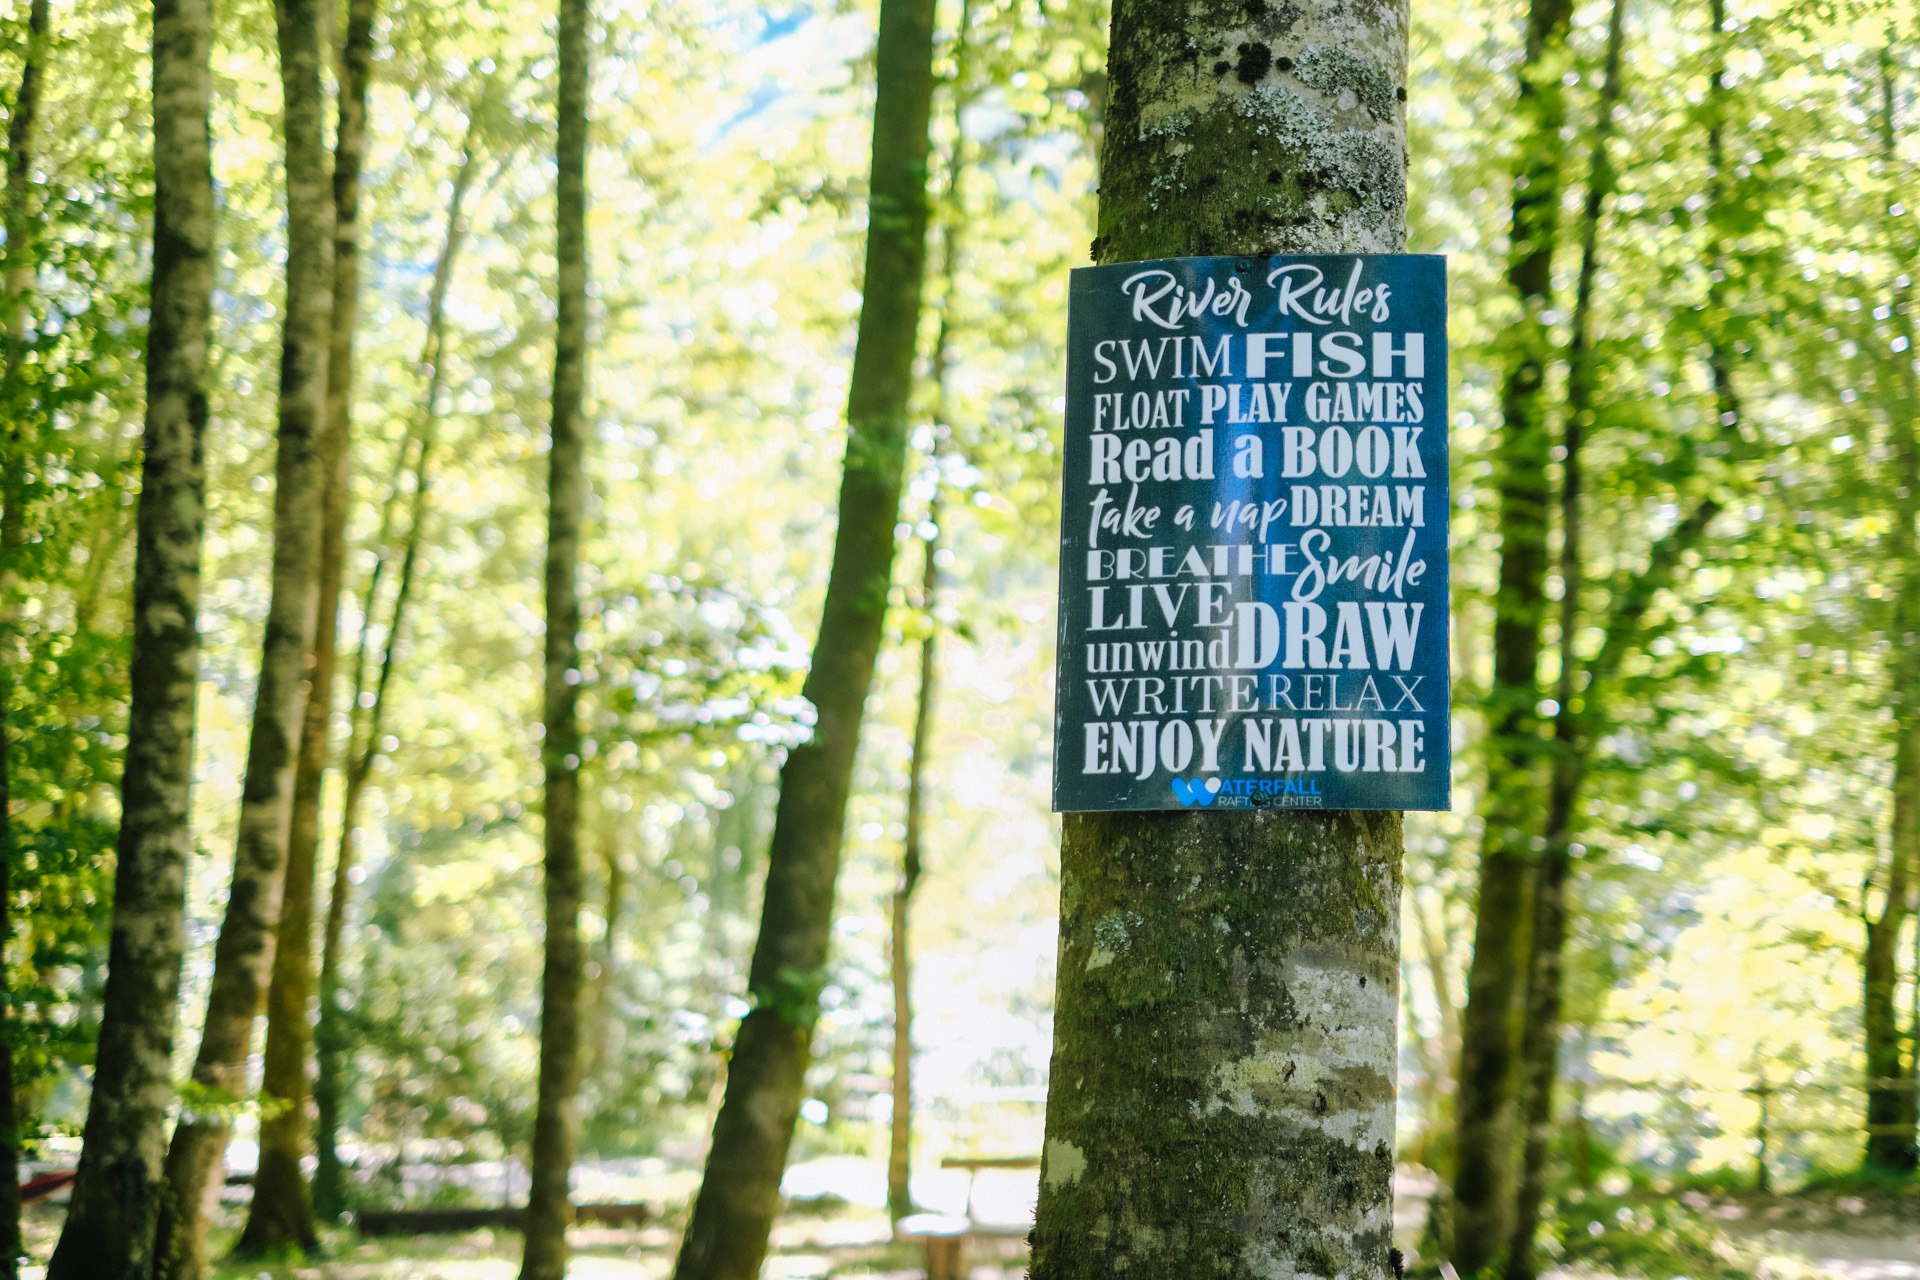 River Rules
SWIM FISH
FLOAT PLAY GAMES
Read a BOOK
take a nap DREAM
BREATHE Smile
LIVE DRAW
unwind
WRITE RELAX
ENJOY NATURE
WATERFALL
RAFTING CENTER